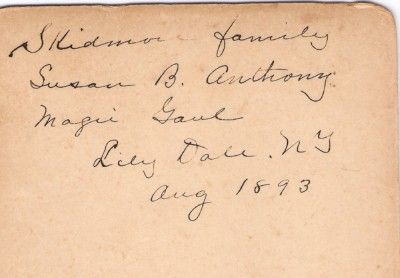 Skidmore family
Susan B. Anthony
Magie Gaul
Lily Dale. NY
Aug 1893